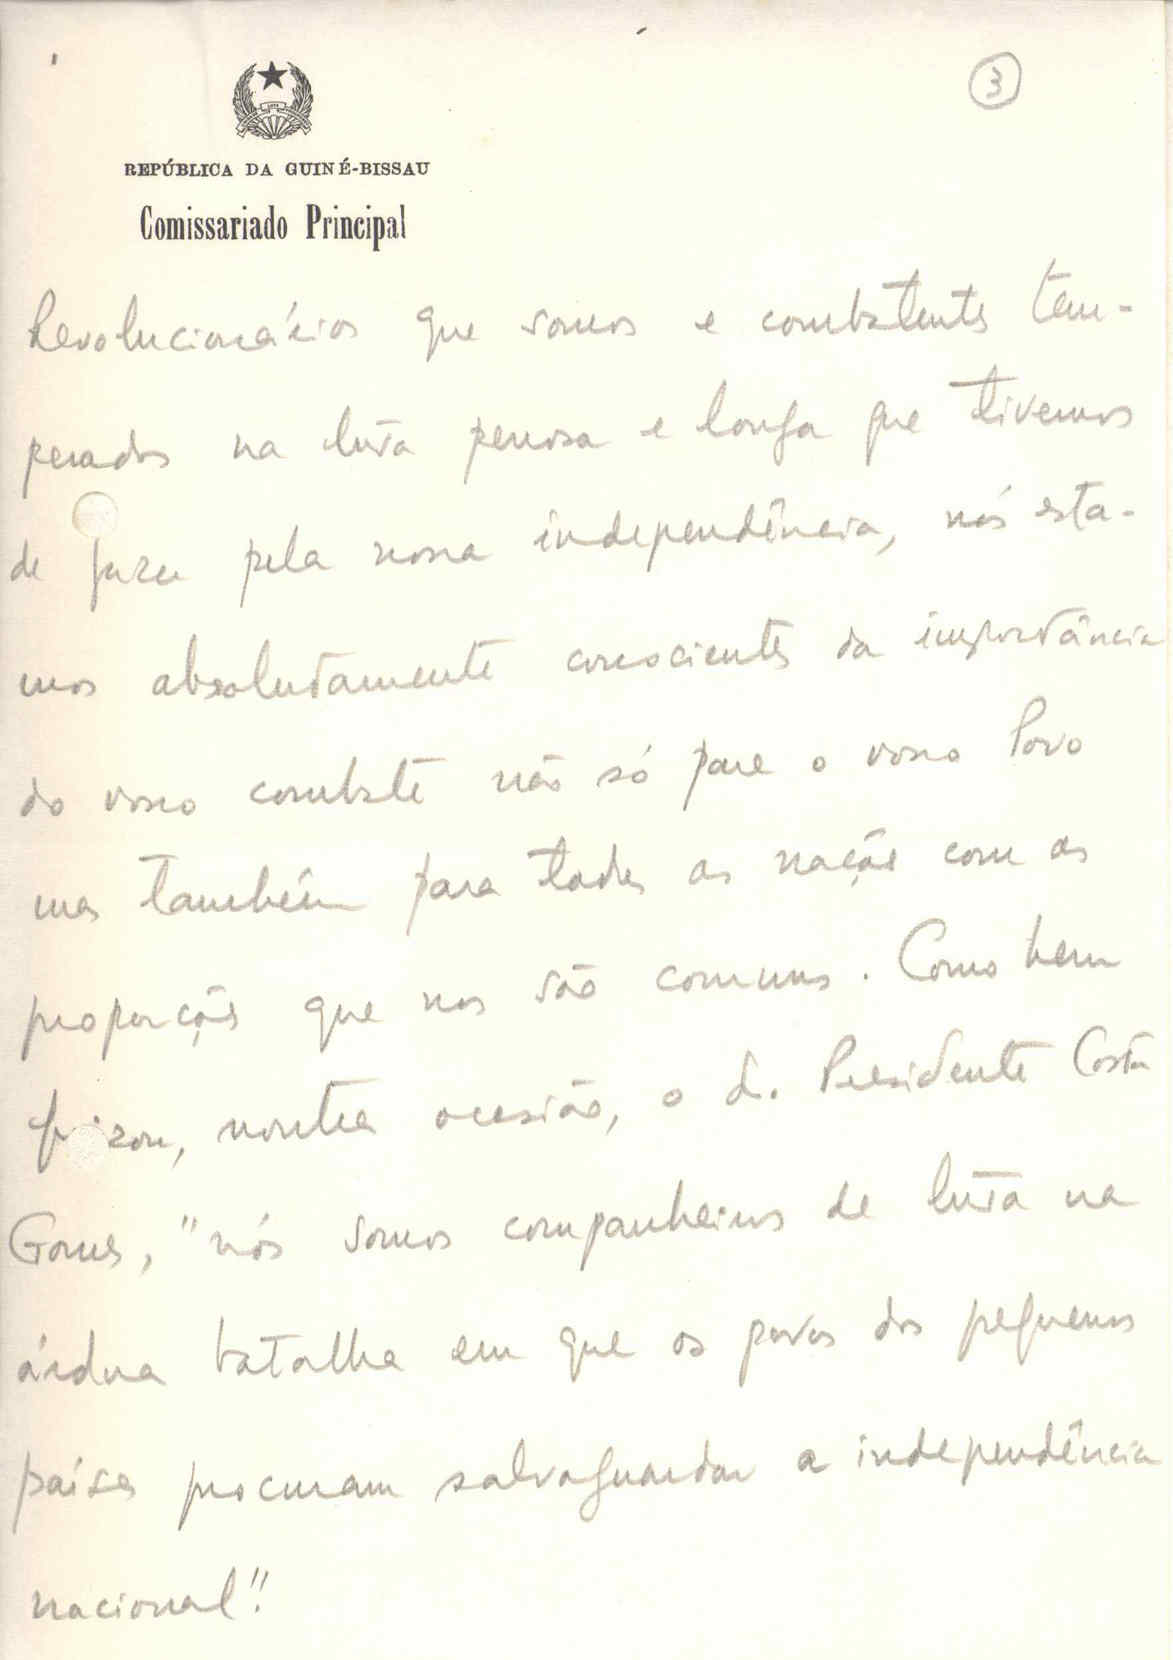 3
REPÚBLICA DA GUINÉ-BISSAU
Comissariado Principal
Revolucionários que somos e combatentes tem-
perados na luta penosa e longa que tivemos
de fazer pela nossa independência, nós esta-
mos absolutamente conscientes da importância
do vosso combate não só para o vosso Povo
mas também para todas as nações com as
proporções que nos são comuns. Como bem
frizou, noutra ocasião, o S. Presidente Costa
Gomes, "nós somos companheiros de luta na
árdua batalha em que os povos dos pequenos
países procuram salvaguardar a independência
nacional".